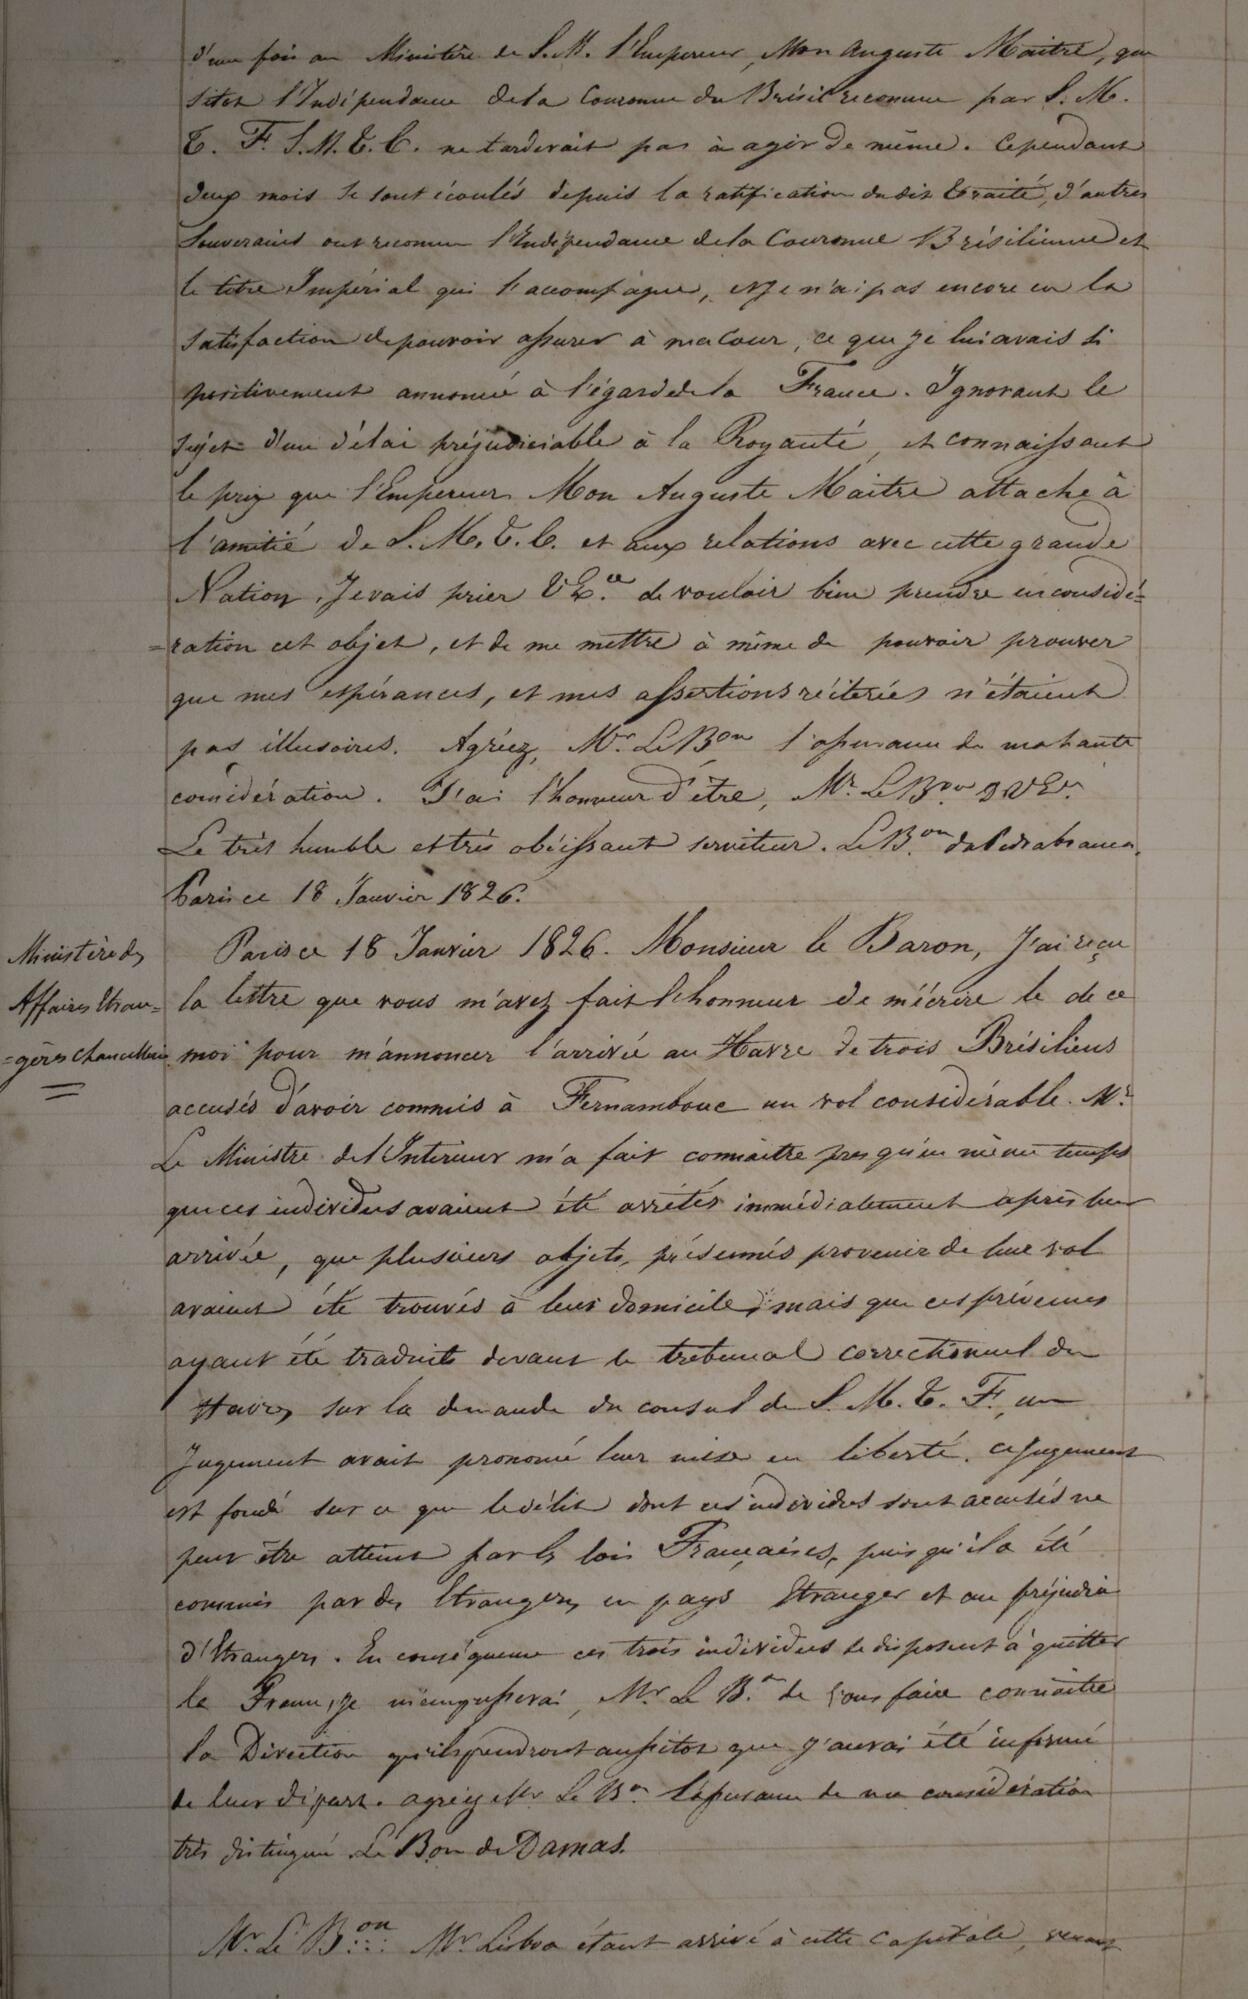 d'une fois au Ministère de S. M. l'Empereur, Mon Auguste Maitre, que
sitot l'Indépendance de la Couronne du Brésil reconnue par S. M.
T. F. S. M. T. C. ne tarderait pas à agir de même. Cependant
deux mois se sont écoulés depuis la ratification du dit Traité, d'autres
Souverains ont reconnu l'Indépendance de la Couronne Brésilienne et
le titre Impérial qui l'accompagne, et je n'ai pas encore eu la
satisfaction de pouvoir assurer à ma Cour, ce que je lui avais si
positivement annoncé à l'égard de la France. Ignorant le
sujet d'un délai préjudiciable à la Royauté, et connaissant
le prix que l'Empereur Mon Auguste Maitre attache à
l'amitié de S. M. T. C. et aux relations avec cette grande
Nation, Je vais prier V Ex.ce de vouloir bien prendre en considé=
=ration cet objet, et de me mettre à même de pouvoir prouver
que mes espérances, et mes assertions réiterées n'étaient
pas illusoires. Agréez, Mr. Le Bon l'assurance de ma haute
considération. J'ai l'honneur d'être, Mr. Le Bon D V Ex.
Le très humble et très obéissant serviteur. Le B.on da Pedrabranca.
Paris ce 18 Janvier 1826.
Ministère des
Affaires Etran=
=gères Chancellerie
Paris ce 18 Janvier 1826. Monsieur le Baron, J'ai reçu
la lettre que vous m'avez fait l'honneur de m'écrire le de ce
moi pour m'annoncer l'arrivée au Havre de trois Brésiliens
accusés d'avoir commis à Fernambouc un vol considérable. Mr.
Le Ministre de l'Interieur m'a fait connaitre presqu'en même temps
que ces individus avaient été arrêtés immédiatement après leur
arrivée, que plusieurs objets, présumés provenir de leur vol
avaient été trouvés à leur domicile, mais que ces prévenus
ayant été traduits devant le tribunal correctionnel du
Havre, sur la demande du consul de S. M. T. F., un
Jugement avait prononcé leur mise en liberté. Ce Jugement
est fondé sur ce que le délit dont ces individus sont accusés ne
peut être atteint par les lois Françaises, puisqu'il a été
commis par des Etrangers en pays Etranger et au préjudice
d'Etrangers. En conséquence ces trois individus se disposent à quitter
la France, je m'empresserai, Mr Le B.on de vous faire connaitre
la Direction qu'ils prendront aussitot que j'aurai été informé
de leur départ. agréez Mr Le Bon l'assurance de ma considération
très distinguée. Le Bon de Damas.
Mr. Le Bon Mr. Lisboa étant arrivé à cette Capitale, venant